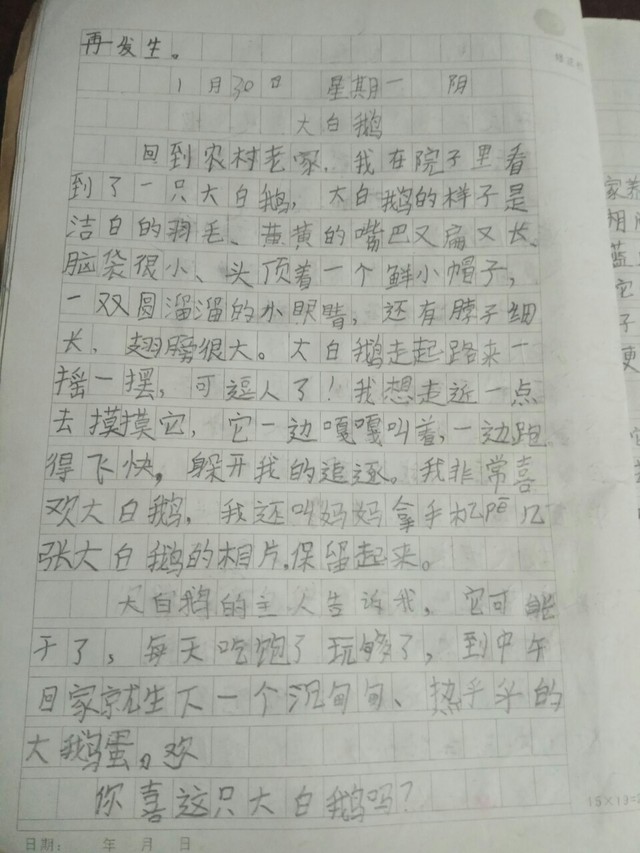 再发生。
1月30日 星期一 阴
大白鹅
回到农村老家，我在院子里看
到了一只大白鹅，大白鹅的样子是
洁白的羽毛、黄黄的嘴巴又扁又长、
脑袋很小、头顶着一个鲜小帽子，
一双圆溜溜的小眼睛，还有脖子细
长，翅膀很大。大白鹅走起路来一
摇一摆，可逗人了！我想走近一点
去摸摸它，它一边嘎嘎叫着，一边跑
得飞快，躲开我的追逐。我非常喜
欢大白鹅，我还叫妈妈拿手机pāi几
张大白鹅的相片，保留起来。
大白鹅的主人告诉我，它可能
干了，每天吃饱了玩够了，到中午
回家就生下一个沉甸甸、热乎乎的
大鹅蛋。欢
你喜这只大白鹅吗？
日期： 年 月 日
15×13=2